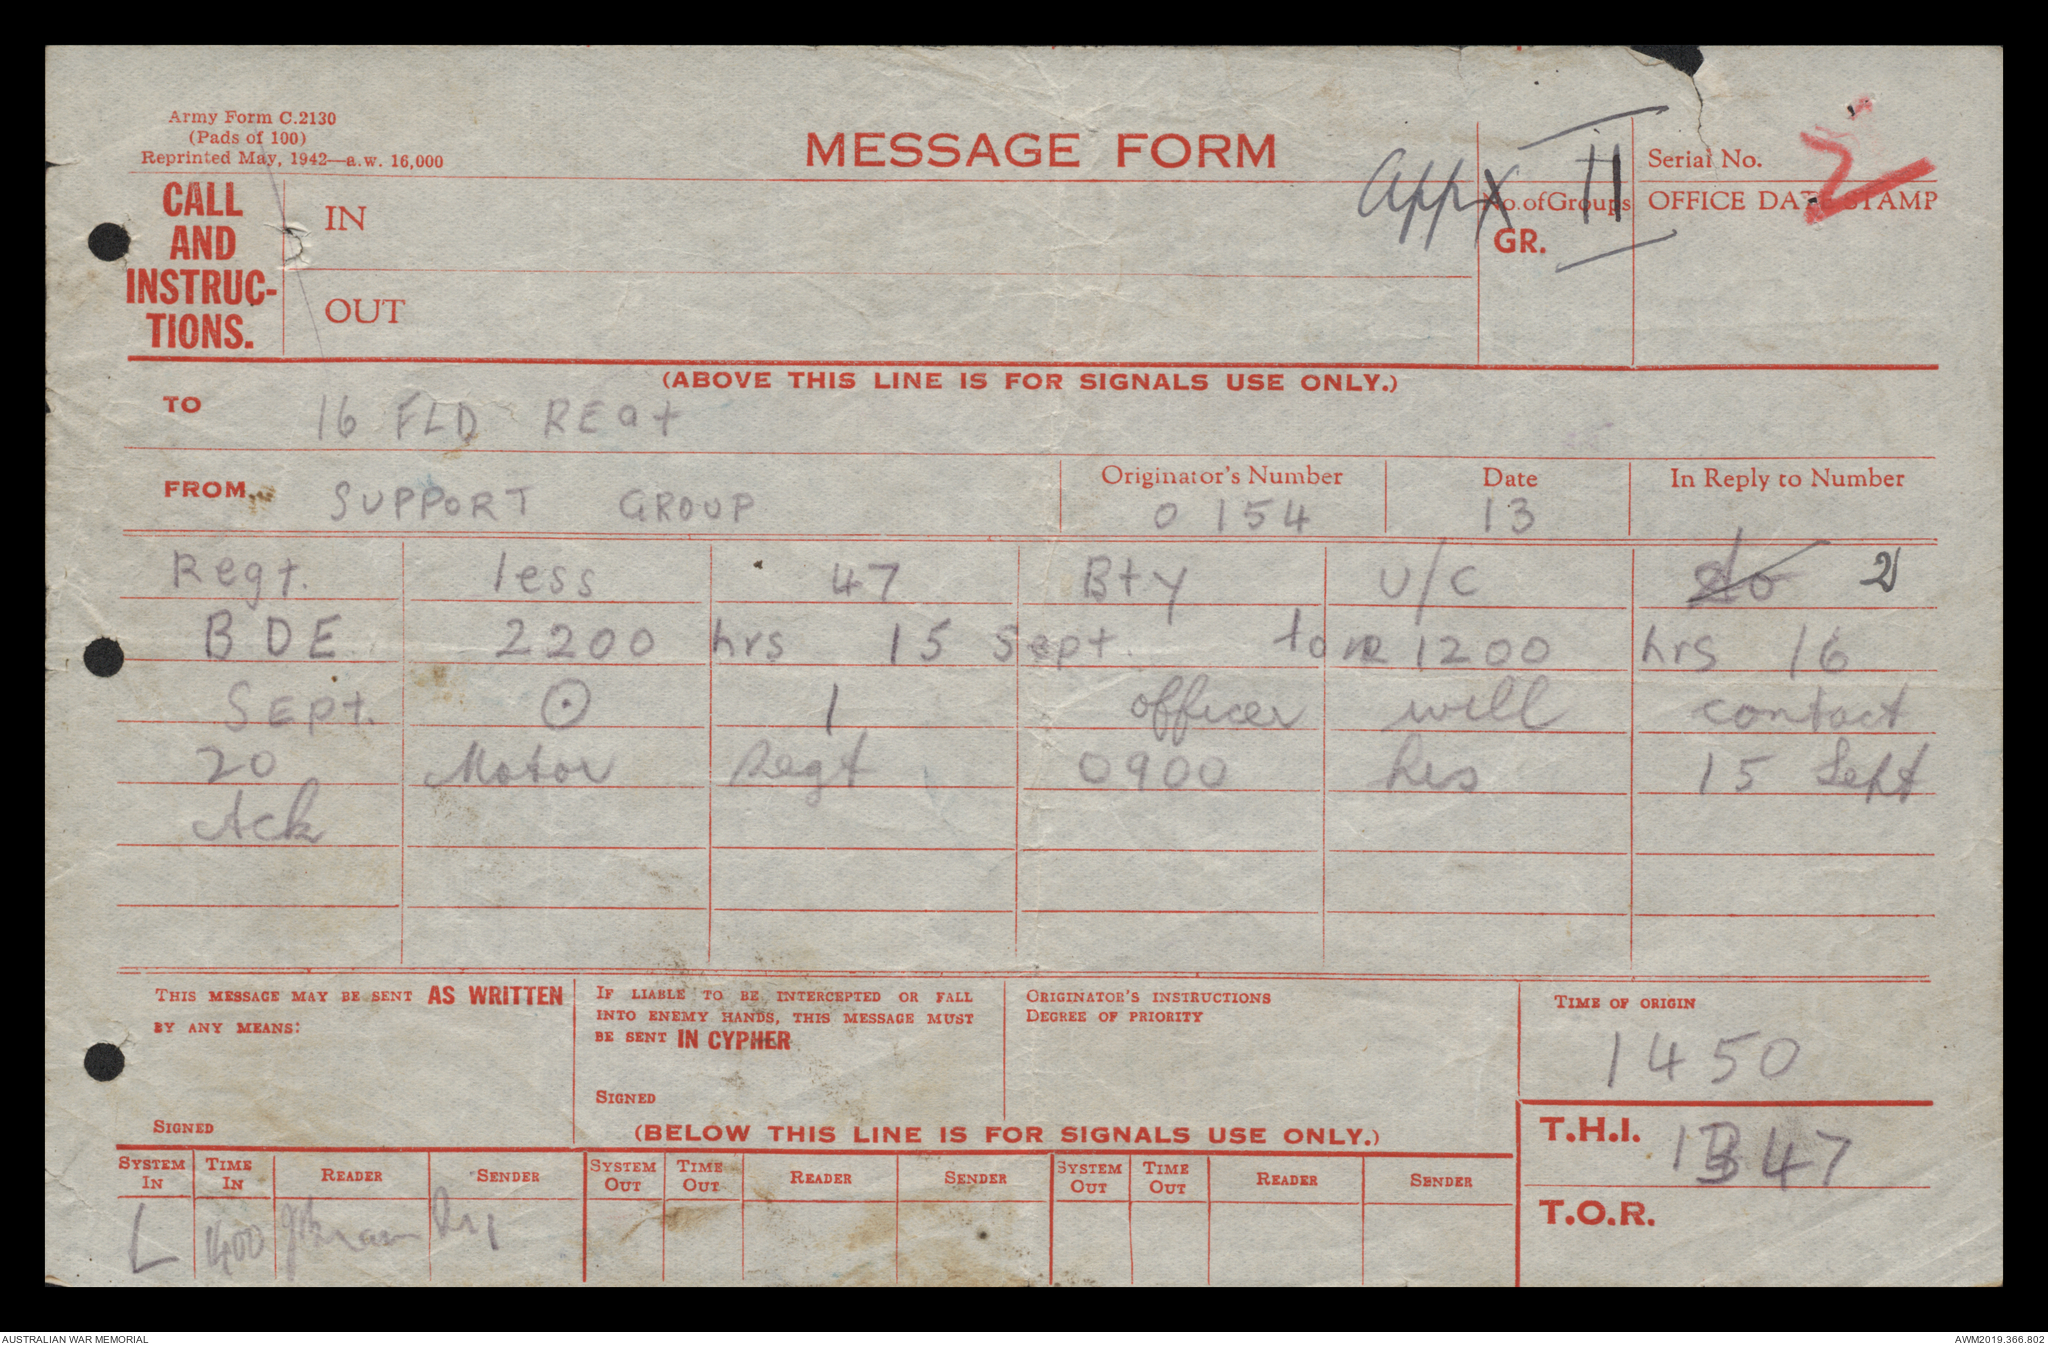 Army Form C.2130
(Pads of 100)
Reprinted May, 1942—a.w. 16,000
MESSAGE FORM
Appx II
Serial No.
2
CALL
AND
INSTRUC-
TIONS.
IN
OUT
No. of Groups
GR.
OFFICE DATE STAMP
(ABOVE THIS LINE IS FOR SIGNALS USE ONLY.)
TO 16 FLD REGt
FROM SUPPORT GROUP
Originator's Number
0 154
Date
13
In Reply to Number
Regt. less 47 Bty U/C 2
BDE 2200 hrs 15 Sept. to 1200 hrs 16
SEpt. ⊙ 1 officer will contact
20 Motor Regt 0900 hrs 15 Sept
Ack
THIS MESSAGE MAY BE SENT AS WRITTEN
BY ANY MEANS:
SIGNED
IF LIABLE TO BE INTERCEPTED OR FALL
INTO ENEMY HANDS, THIS MESSAGE MUST
BE SENT IN CYPHER
SIGNED
ORIGINATOR'S INSTRUCTIONS
DEGREE OF PRIORITY
TIME OF ORIGIN
1450
(BELOW THIS LINE IS FOR SIGNALS USE ONLY.)
T.H.I.
T.O.R.
SYSTEM IN TIME IN READER SENDER SYSTEM OUT TIME OUT READER SENDER SYSTEM OUT TIME OUT READER SENDER
L 1400
AUSTRALIAN WAR MEMORIAL
AWM2019.366.802